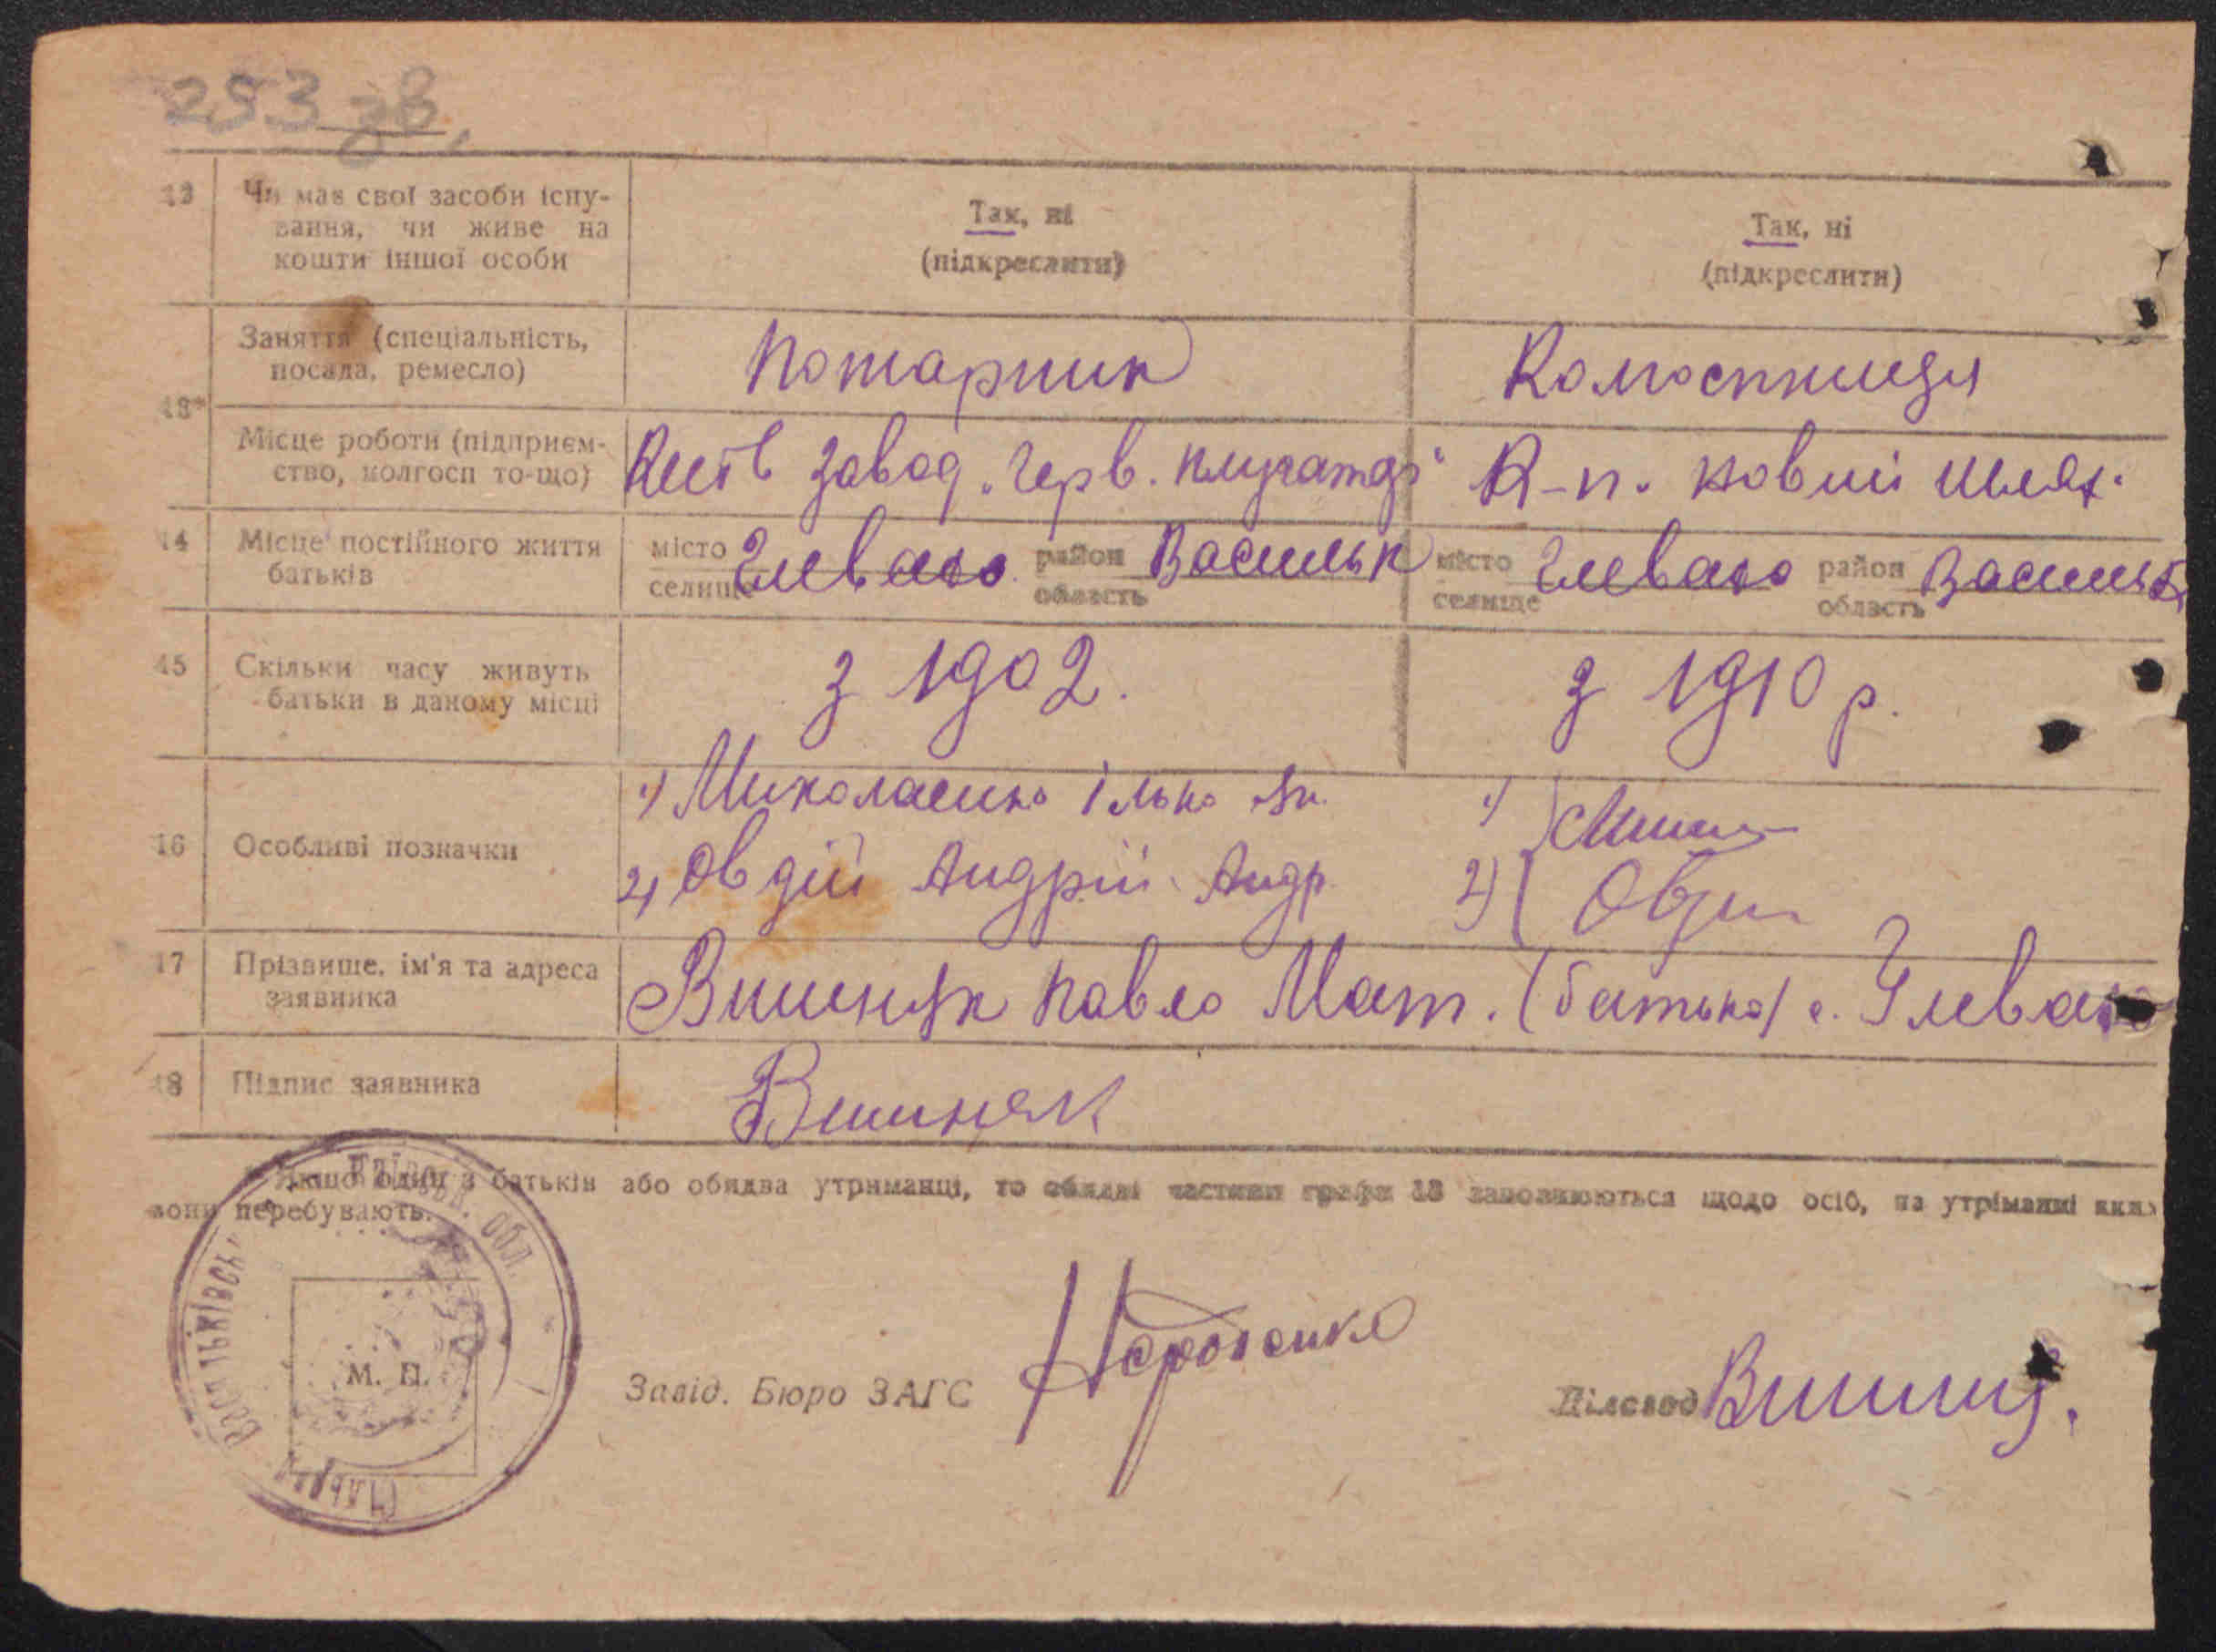 253 зв.
12 Чи має свої засоби існу-
вання, чи живе на
кошти іншої особи
Так, ні
(підкреслити)
Так, ні
(підкреслити)
13*
Заняття (спеціальність,
посада, ремесло)
Пожарник
Колгоспниця
Місце роботи (підприєм-
ство, колгосп то-що)
завод „Черв. плугатар"
К-п. Новий шлях.
14 Місце постійного життя
батьків
місто
селище
Глеваха
район
область
Васильк
місто
селище
Глеваха
район
область
Васильк
15 Скільки часу живуть
батьки в даному місці
з 1902.
з 1910 р.
16 Особливі позначки
1) Миколаенко Ілько
2) Овдій Андрій Андр.
1)
2)
17 Прізвище, ім'я та адреса
заявника
Вишняк Павло Мат. (батько) с. Глеваха
18 Підпис заявника
Вишняк
Якщо один з батьків або обидва утриманці, то обидві частини графи 13 заповнюються щодо осіб, на утріманні яких
вони перебувають.
Київськ. обл.
Васильківськ
М. П.
Завід. Бюро ЗАГС
Діловод